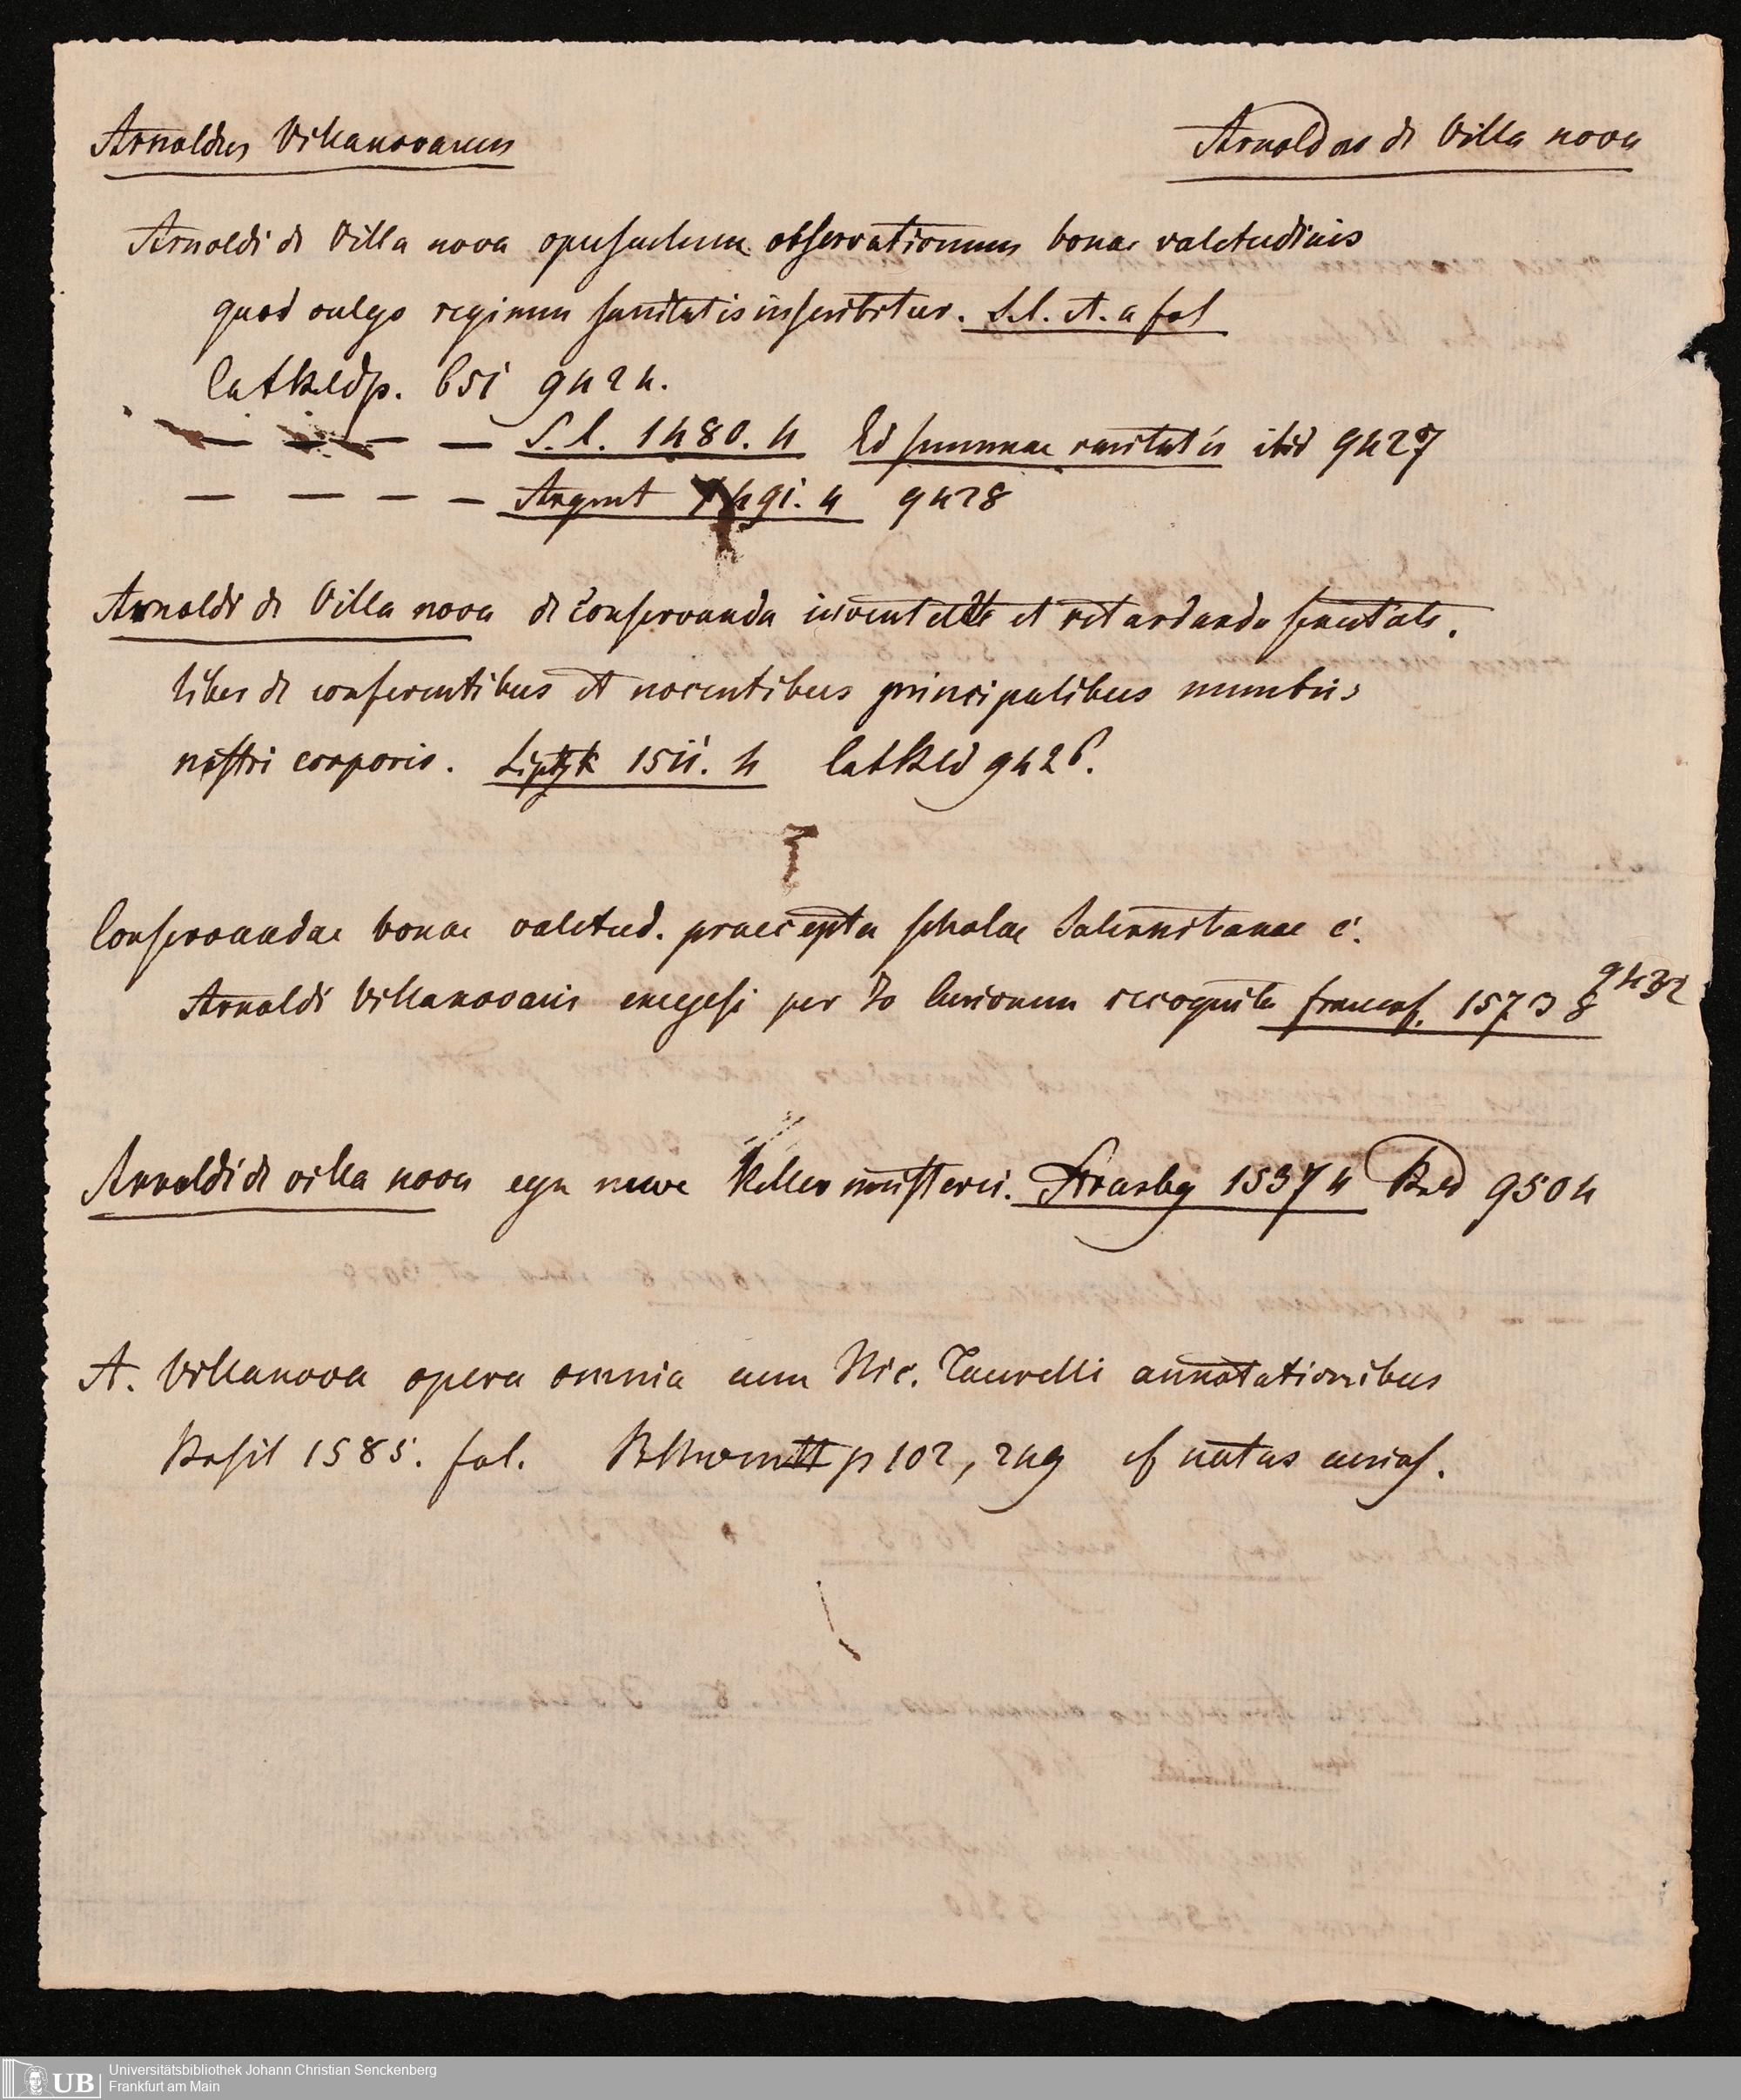 Arnoldus Villanovanus
Arnoldus de Villa nova
Arnoldi de Villa nova opusculum observationum bonae valetudinis
quod vulgo regimen sanitatis inscribitur. S. l. et. a fol
CatBald p. 651 9424.
— — — — S. l. 1480. 4 Ed summae raritatis ibid 9427
— — — — Argent 1491. 4 9428
Arnoldi de Villa nova de conservanda iuventute et retardanda senectute.
liber de conferentibus et nocentibus principalibus membris
nostri corporis. Lipzk 1511. 4 CatBld 9426.
Conservandae bonae valetud. praecepta scholae Salernitanae c.
Arnoldi Villanovani exegesi per Jo Curionem recognita francof. 1573 8 9432
Arnoldi de villa nova eyn newe Kellermeisterei. Strasbg 1537 4 Bald 9504
A. Villanova opera omnia cum Nic. Taurelli annotationibus
Basil 1585. fol. p 102, 249 cf notas
Universitätsbibliothek Johann Christian Senckenberg
Frankfurt am Main
UB